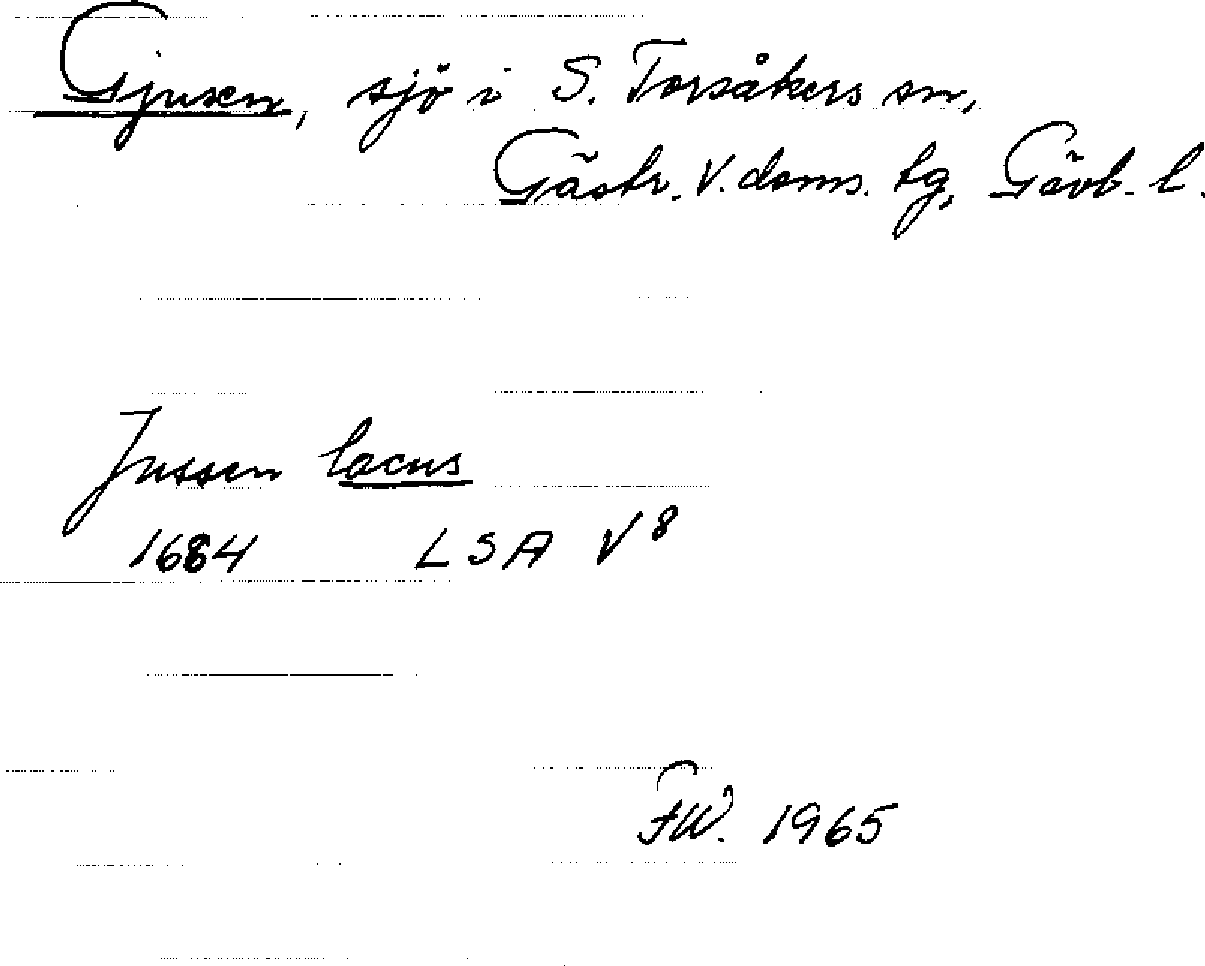 Gjuxen, sjö i S. Torsåkers sn,
Gästr. V. doms. tg, Gävb. l.
Jussen lacus
1684 LSA V8
FW. 1965